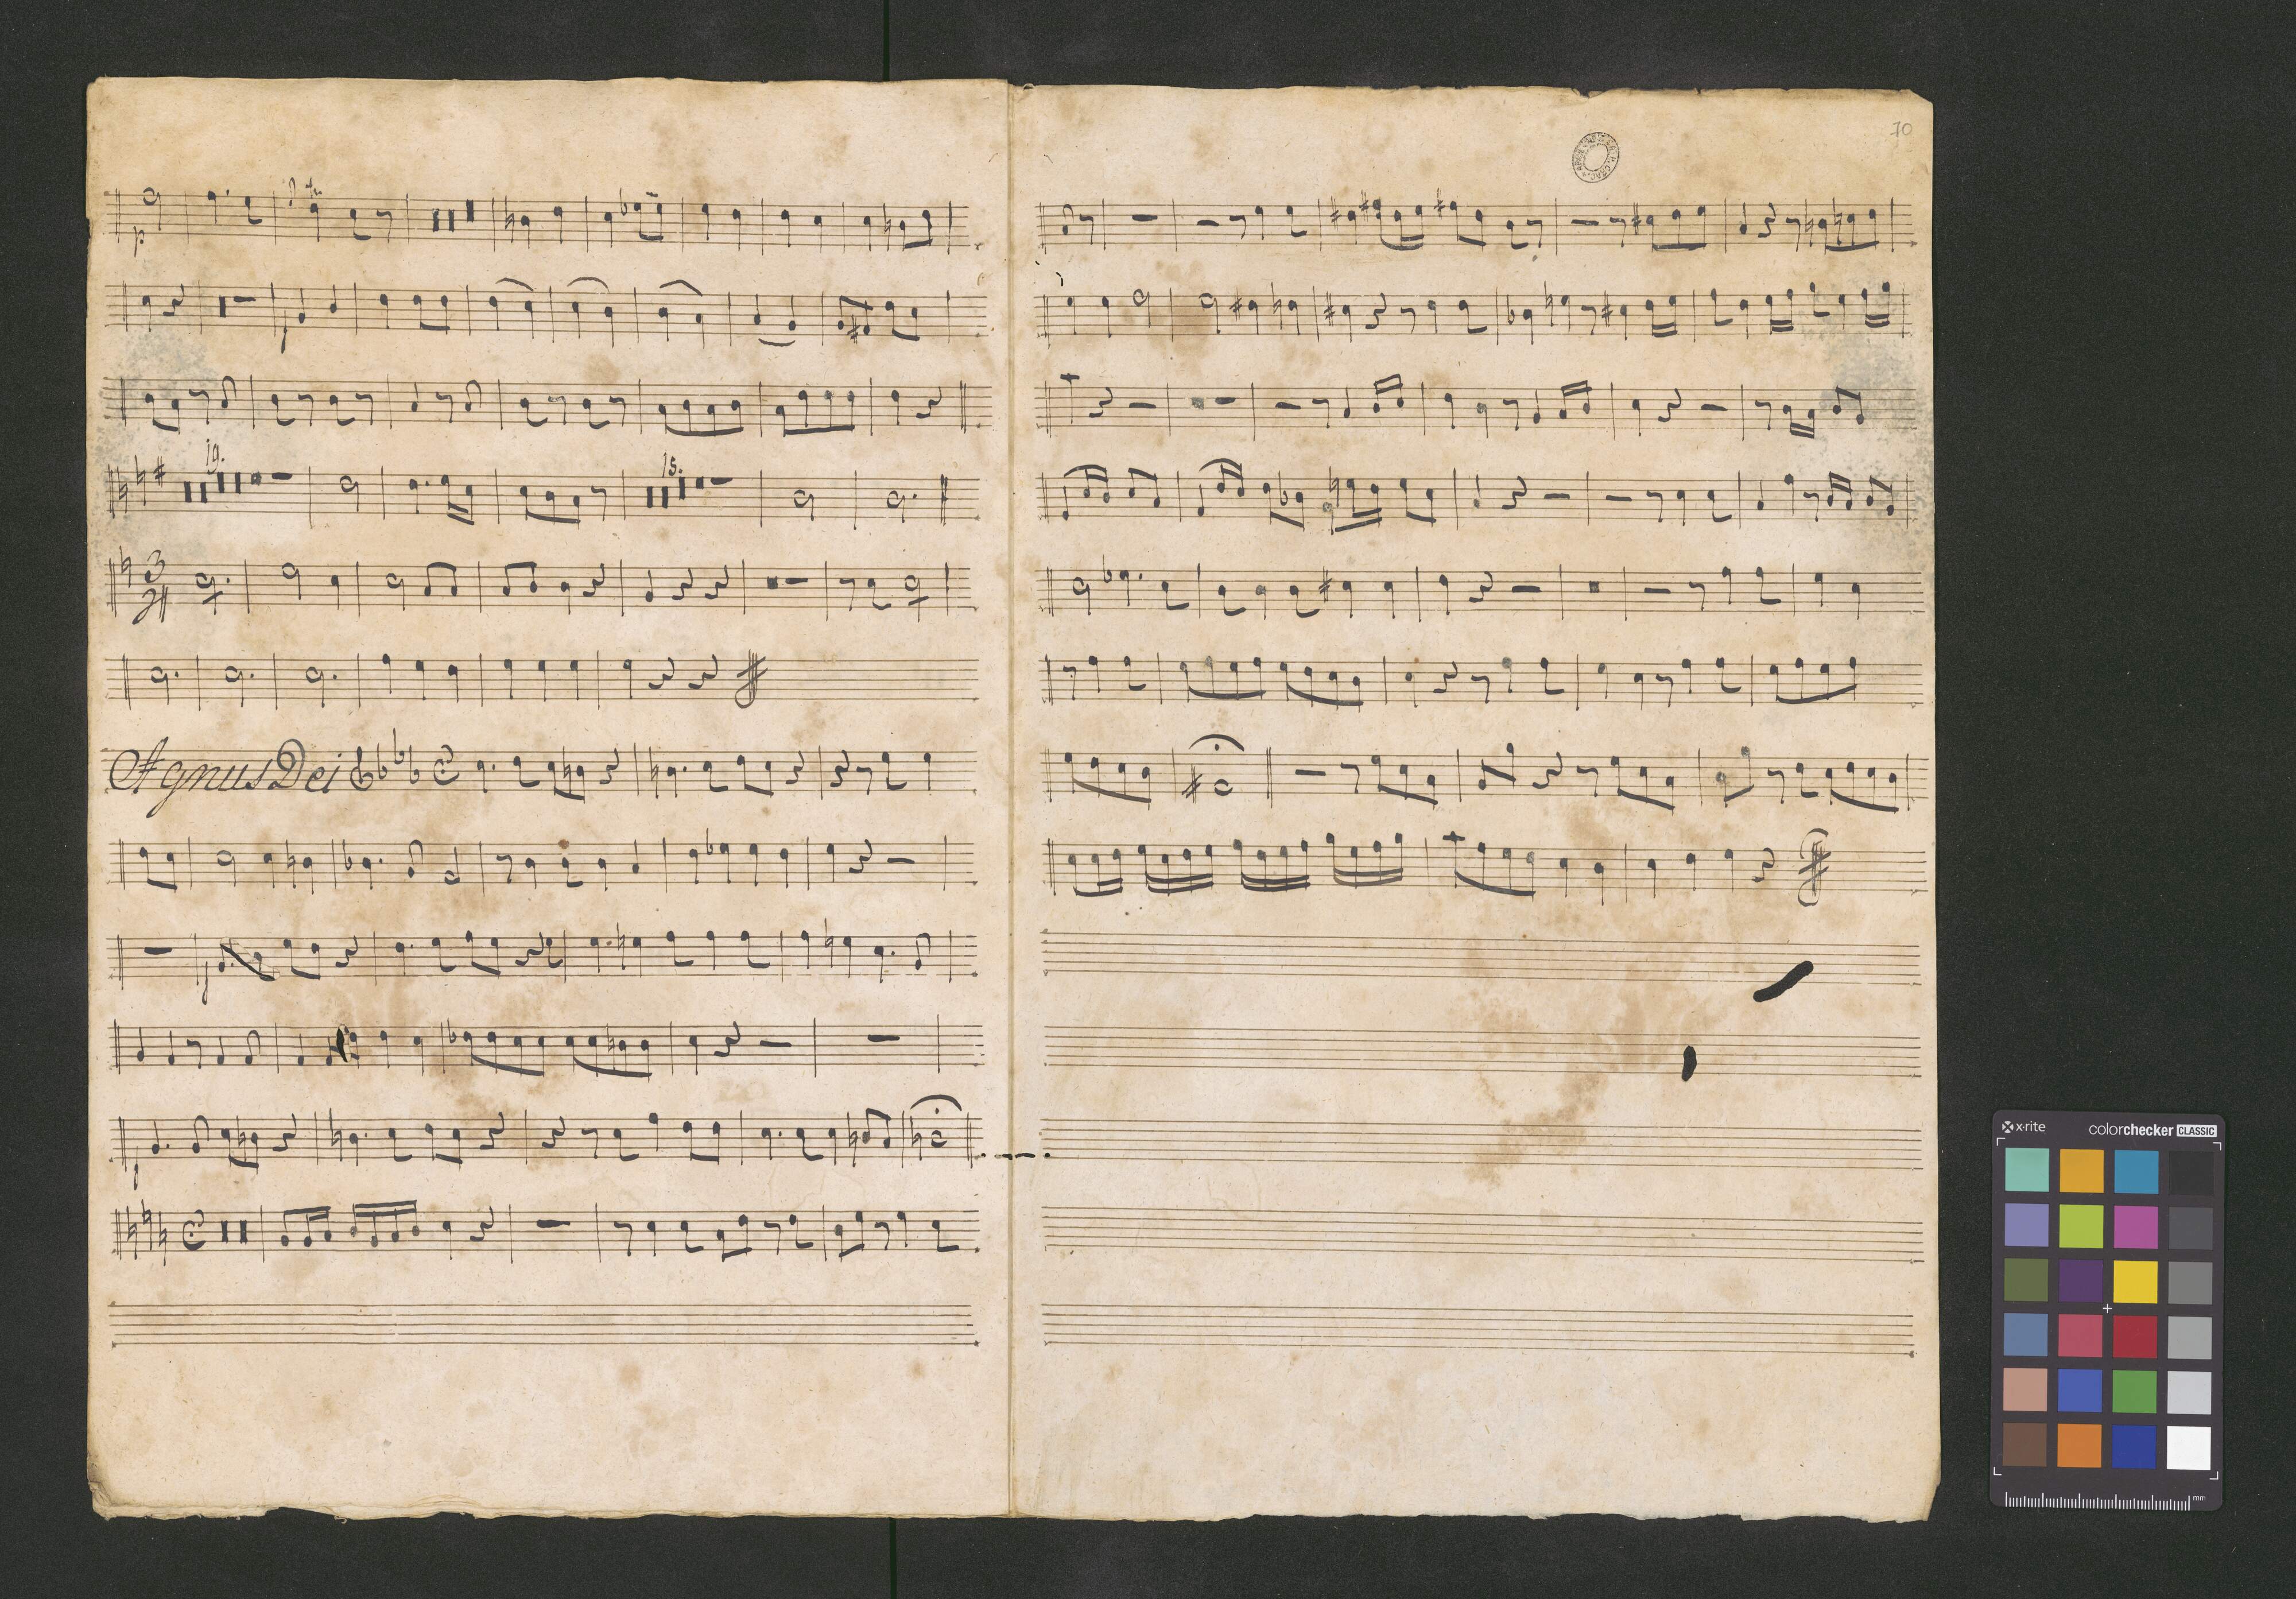 p
19.
15.
3
4
Agnus Dei
70
x-rite
colorchecker CLASSIC
mm